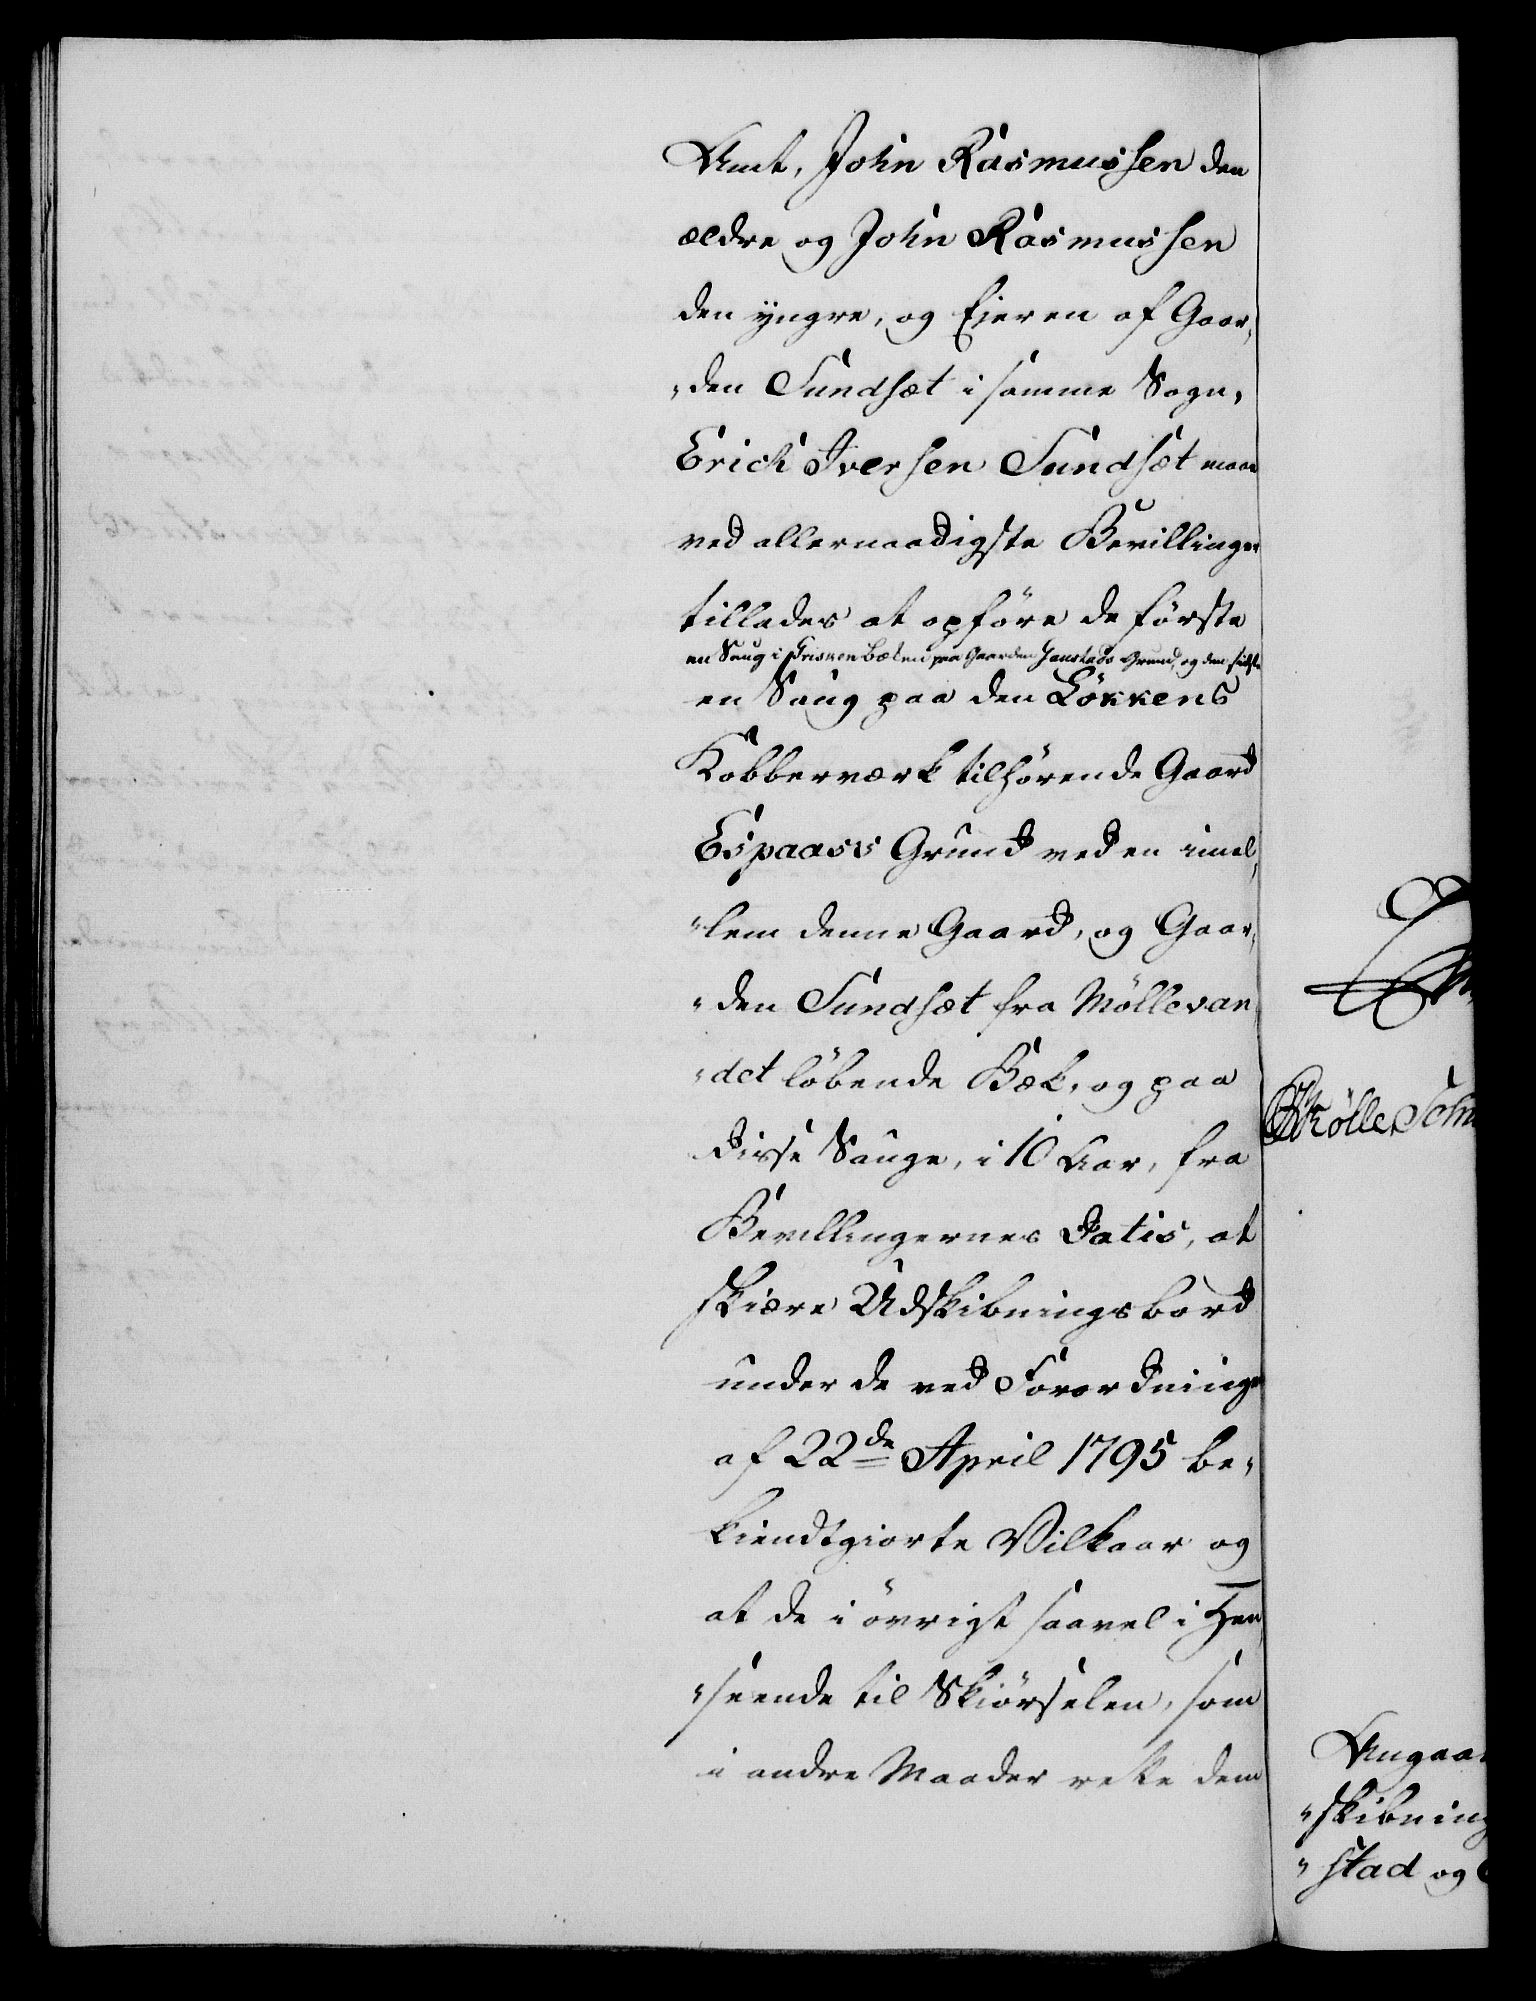 Amt, John Rasmussen den
ældre og John Rasmussen
den yngre, og Eieren af Gaar,
"den Sundsæt i samme Sogn,
Erich Iversen Sundsæt maae
ved allernaadigste Bevillinger
tillades at opföre de förste
en Saug i Grisnenbækken paa Gaarden Haustads Grund, og den sidste
en Saug paa den Lökkens
Kobberværk tilhörende Gaard
Espaass Grund ved en imel,
"lem denne Gaard, og Gaar,
"den Sundsæt fra Möllevan
"det löbende Bæk, og paa
disse Sauge, i 10 Aar, fra
Bevillingernes Datis, at
skiære Udskibningsbord
under de ved Forordninge
af 22de April 1795 be,
kiendtgiorte Vilkaar og
at de i övrigt saavel i Hen
"seende til Skiörselen, som
i andre Maader rette dem
Angaa
"skibning
"stad og